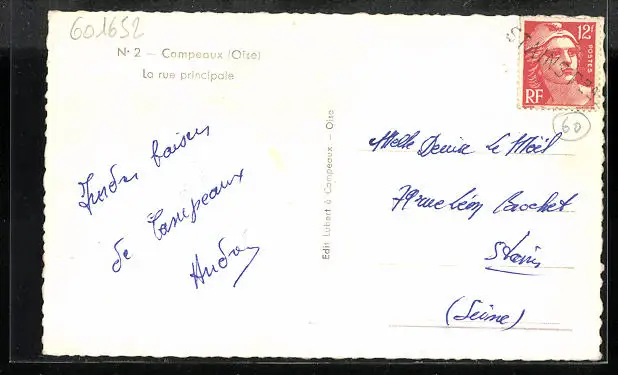 601652
N° 2 — Campeaux (Oise)
La rue principale
12F
POSTES
RF
60
Tendres baisers
de Campeaux
Edit Lubert à Campeaux - Oise
Melle Denise Le
rue Léon
Stains
(Seine)